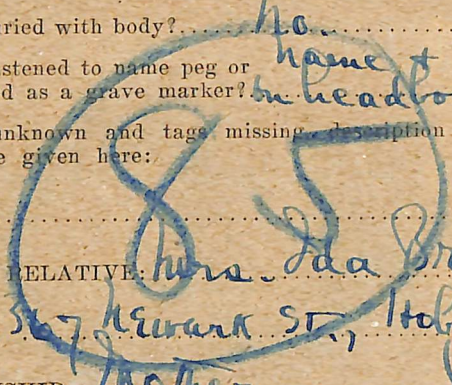 ried with body? No.
name +
stened to name peg or
d as a grave marker? on headbo
unknown and tags missing, description
e given here:
85
RELATIVE: Mrs. Ida Br
367 Newark St., Hob
Mother